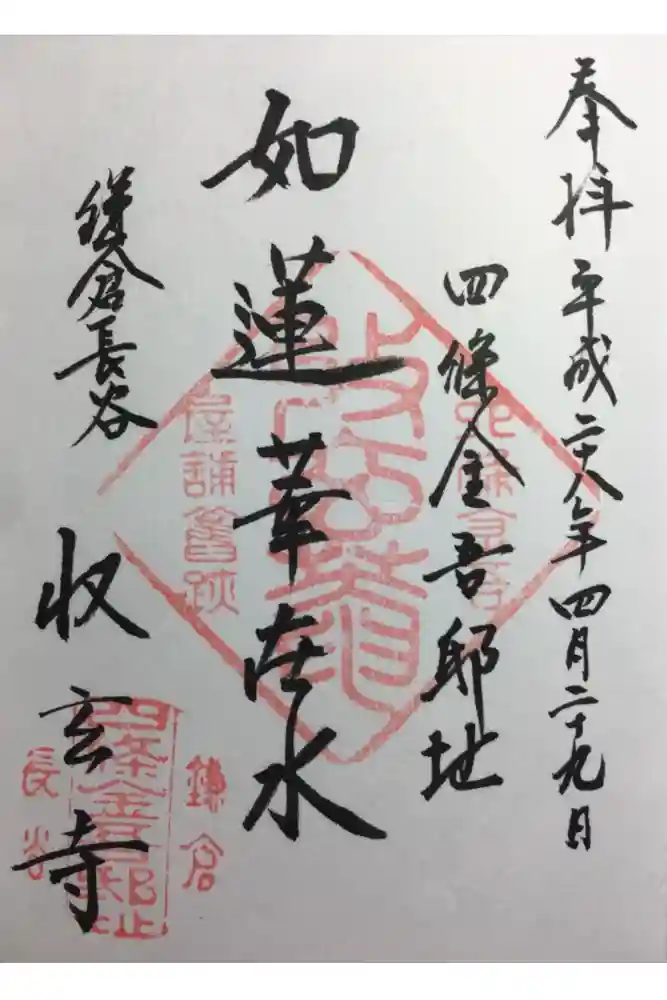 奉拝 平成二十八年四月二十九日
四條金吾邸址
如蓮華在水
鎌倉長谷
収玄寺
屋舗舊跡
鎌倉
長谷
四条金吾邸址